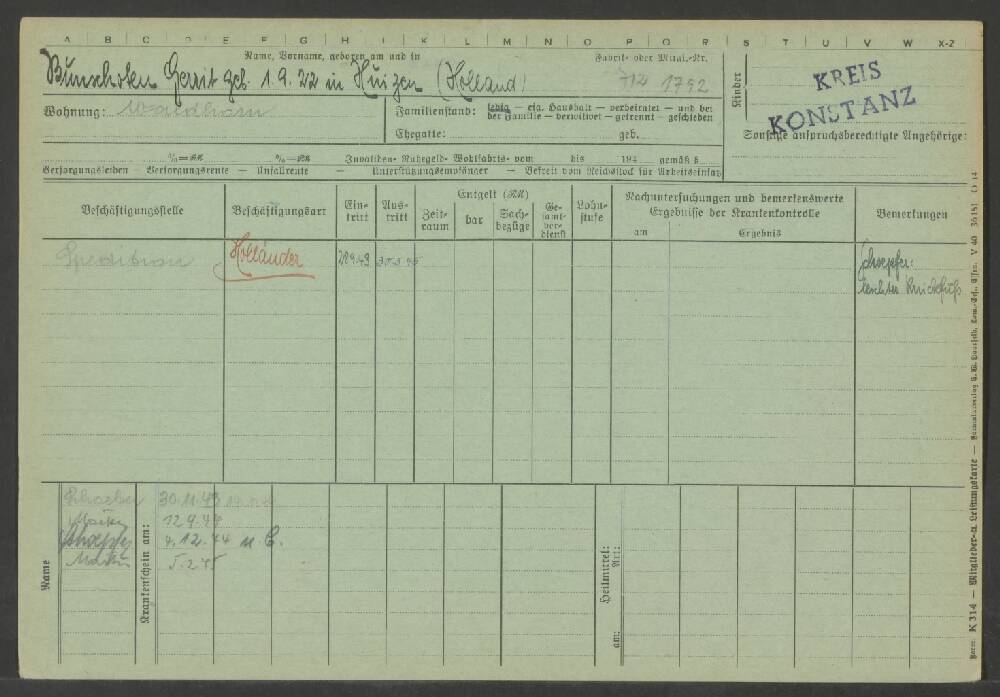 A B C D E F G H I K L M N O P Q R S T U V W X-Z
Name, Vorname, geboren am und in
Fabrik- oder Mitgl.-Nr.
Bunschoten Gerrit geb. 1.9.22 in Huizen (Holland)
712 1752
Kinder
KREIS
KONSTANZ
Wohnung:
Familienstand: ledig — eig. Haushalt — verheiratet — und bei
der Familie — verwitwet — getrennt — geschieden
Ehegatte: geb.
Sonstige anspruchsberechtigte Angehörige:
%=RM %=RM Invaliden- Ruhegeld- Wohlfahrts- vom bis 194 gemäß §
Versorgungsleiden — Versorgungsrente — Unfallrente — Unterstützungsempfänger — Befreit vom Reichsstock für Arbeitseinsatz
Beschäftigungsstelle
Beschäftigungsart
Eintritt
Austritt
Entgelt (RM)
Zeitraum
bar
Sachbezüge
Gesamtverdienst
Lohnstufe
Nachuntersuchungen und bemerkenswerte
Ergebnisse der Krankenkontrolle
am
Ergebnis
Bemerkungen
Spedition
Holländer
leichter Knickfuß
Name
Krankenschein am:
30.11.43
12.9.44
4.12.44 u. C.
5.2.45
Heilmittel:
Art:
am:
Form. K 314 — Mitglieder- u. Leistungskarte —